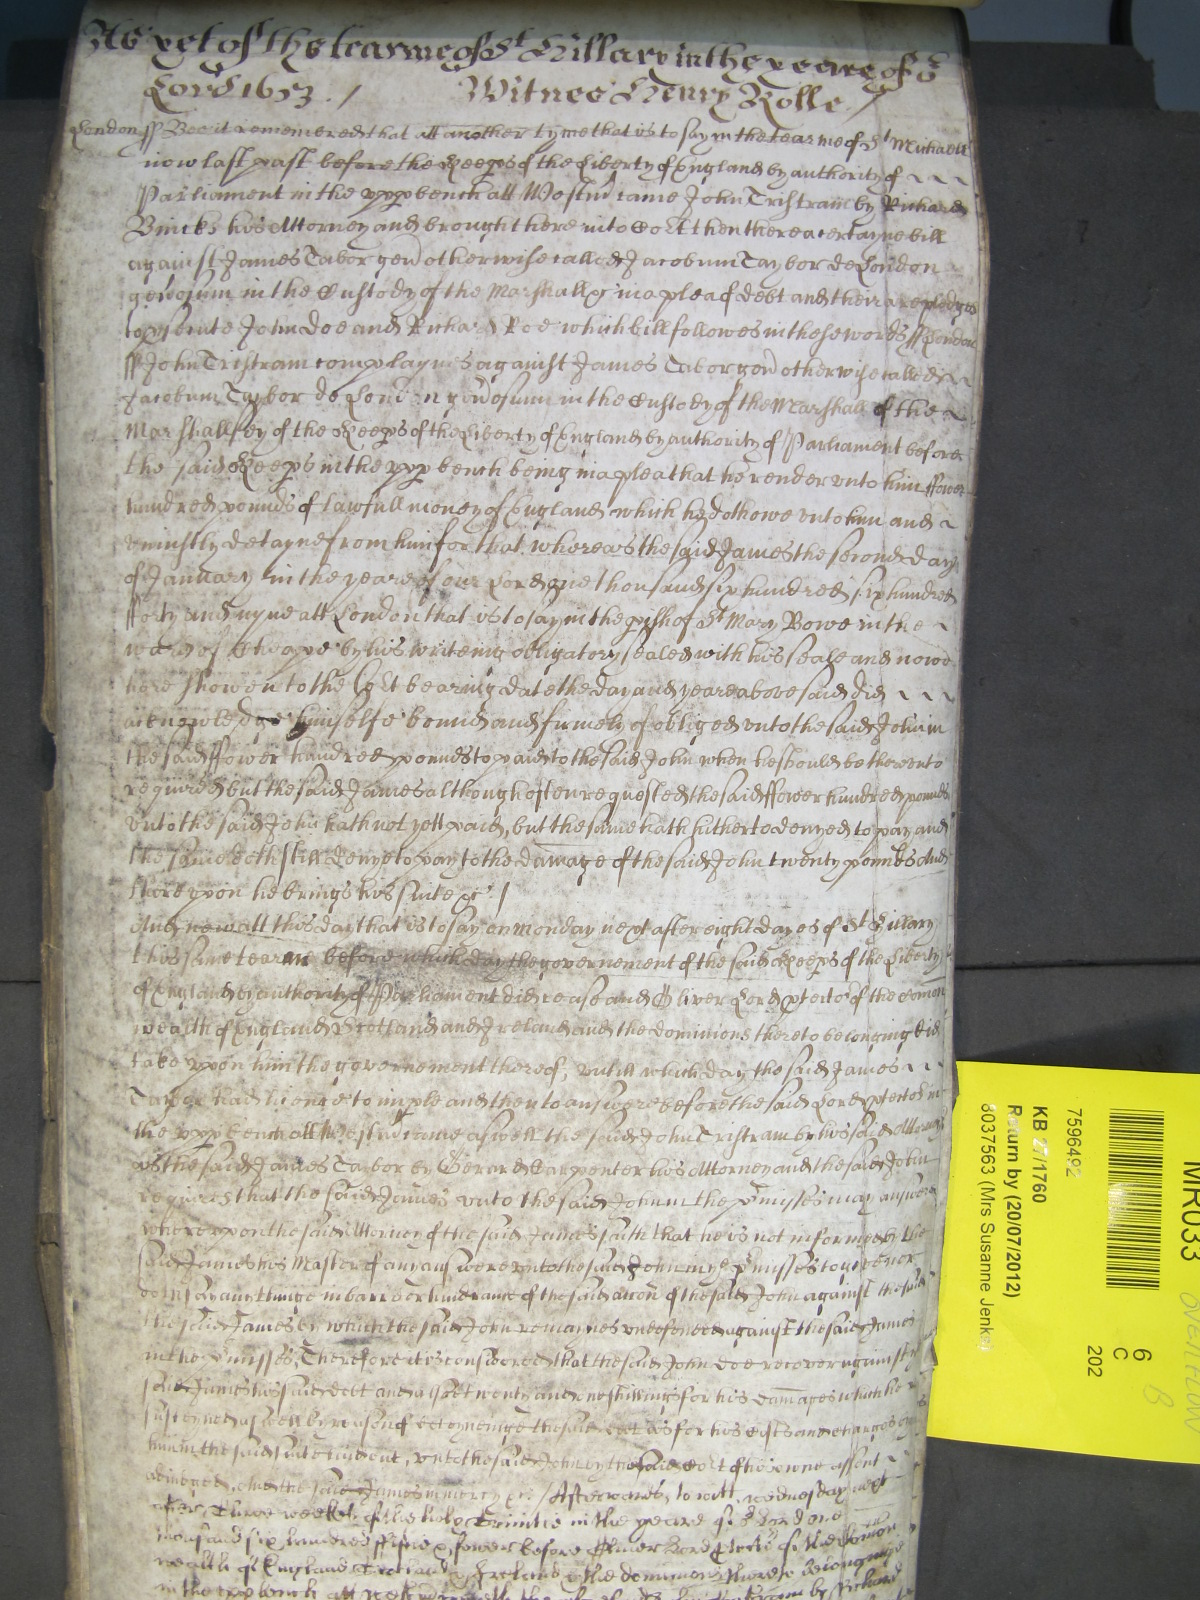 As yet of the tearme of St Hillary in the yeare of or
Lord 1653 / Witnes Henry Rolle /
London ss Bee it remembered that att another tyme that is to say in the tearme of St Michaell
now last past before the Keeps of the Liberty of England by authority of
Parliament in the upp bench att Westmr came John Tristram by Richard
his Attorney and brought here into Cort then there a certayne bill
against James Tabor gen otherwise called Jacobum Taybor de London
generosum in the Custody of the Marshall &c in a plea of debt and their are pledges
to psecute John Doe and Richard Roe which bill followes in these words ss London
ss John Tristram complaynes against James Tabor gen otherwise called
Jacobum Taybor de London generosum in the Custody of the Marshall of the
Marshallsey of the Keeps of the Liberty of England by authority of Parliament before
the said Keeps in the upp bench being in a plea that he render unto him ffower
hundred pounds of lawfull money of England which he doth owe unto him and
uniustly detayne from him for that whereas the said James the second day
of January in the yeare of our Lord one thousand six hundred six hundred
fforty and nyne att London that is to say in the pish of St Mary Bowe in the
ward of Cheape by his writeing obligatory sealed with his seale and nowe
here shewen to the Cort bearing date the day and yeare above said did
acknowledge himselfe bound and firmely obliged unto the said John in
the said ffower hundred pounds to paid to the said John when he should be thereunto
required but the said James although often requested the said ffower hundred pounds
unto the said John hath not yett paid, but the same hath hitherto denyed to pay and
the same doth still denye to pay to the damage of the said John twenty pounds And
thereupon he brings his suite &c /
And now att this day that is to say on Monday next after eight dayes of St Hillary
this same tearme before which day the governement of the said Keeps of the Liberty
of England by authority of Parliament did cease and Oliver Lord ptector of the Comon
wealth of England Scotland and Ireland and the dominions thereto belonging did
take upon him the governement thereof, untill which day the said James
Taybor had licence to imple and then to answere before the said Lord ptector in
the upp bench att Westmr came aswell the said John Tristram by his said Attorney
as the said James Taybor by Gerard Carpenter his Attorney and the said John
requires that the said James unto the said John in the pmisses may answere
whereupon the said Attorney of the said James saith that he is not informed by the
said James his Master of any answere unto the said John in the pmisses to give nor
doth say any thinge in barr or hinderance of the said accon of the said John against the said
the said James by which the said John remaynes undefended against the said James
in the pmisses, Therefore it is considered that the said John doe recover against the
said James his said debt and alsoe twenty and one shillings for his damages which he
susteyned aswell by reason of deteyneinge the said debt as for his costs and charges
him in the said suite unto the said John by the said Cort of his owne assent
adiudged, And the said James in mercy &c / Afterwards, to witt, wednesday next
after three weekes of the holy Trinitie in the yeare of or Lord one
thousand six hundred ffiftie & fower before Oliver Lord Ptector of the Comon
wealth of England Scotland & Ireland & the dominions thereto belonginge
in the upp bench att Westmr by Richard
MR033
6
C
202
7596492
KB 27/1760
Return by (20/07/2012)
8037563 (Mrs Susanne Jenks